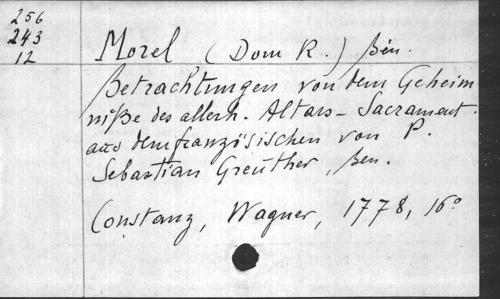 256
243
12
Morel (Dom R.) Ben.
Betrachtungen von dem Geheim
niße des allerh. Altars-Sacrament.
aus dem französischen von P.
Sebastian Greuther, Ben.
Constanz, Wagner, 1778, 16°